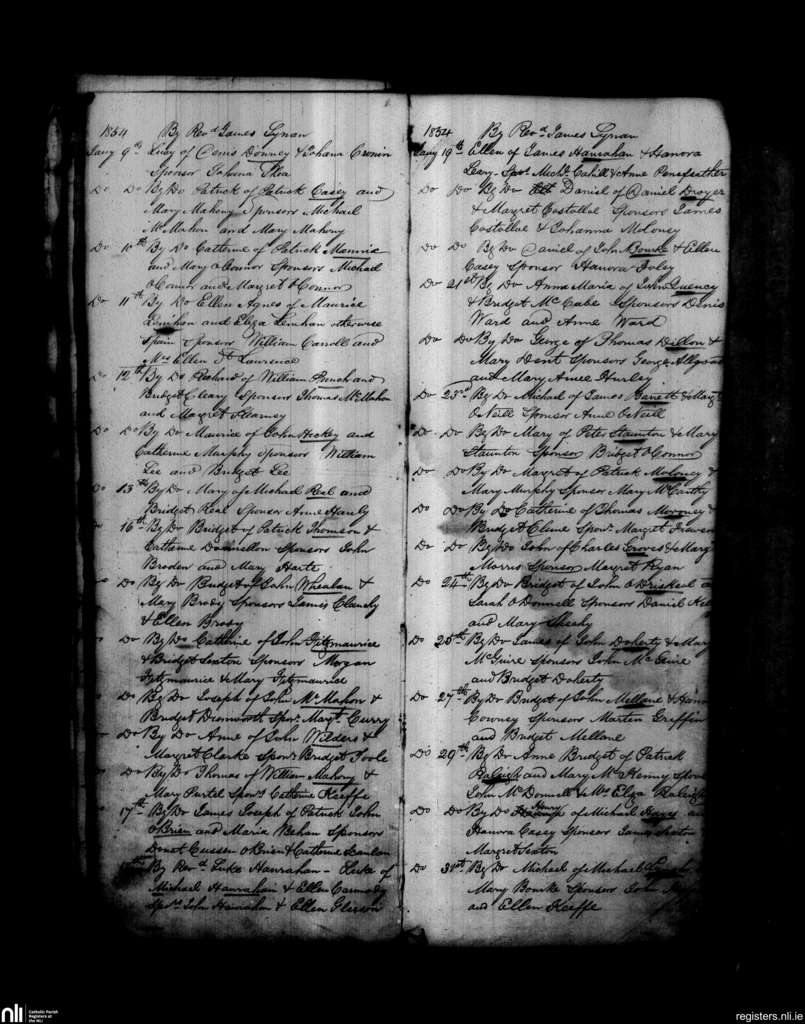 1834 By Revd James Lynan
Jany 9th Lucy of Denis Downey & Johana Cronin
Sponsor Johana Shea
Do Do By Do Patrick of Patrick Casey and
Mary Mahony Sponsors Michael
McMahon and Mary Mahony
Do 10th By Do Catterine of Patrick Mannix
and Mary OConnor Sponsors Michael
OConnor and Margret OConnor
Do 11th By Do Ellen Agnes of Maurice
Lenihan and Eliza Lenihan otherwise
Spain Sponsors William Carroll and
Mrs Ellen St Lawrence
Do 12th By Do Richard of William and
Bridget Cleary Sponsors Thomas McMahon
and Margret Kearney
Do Do By Do Maurice of John Hickey and
Catherine Murphy Sponsors William
Lee and Bridget Lee
Do 13th By Do Mary of Michael Real and
Bridget Real Sponsor Anne Hanly
Do 16th By Do Bridget of Patrick Thomson &
Catterine Donnellon Sponsors John
Broden and Mary Harte
Do By Do Bridget of John Whealan &
Mary Brody Sponsors James Clanchy
& Ellen Brosy
Do By Do Catterine of John Fitzmaurice
& Bridget Sexton Sponsors Morgan
Fitzmaurice & Mary Fitzmaurice
Do By Do Joseph of John McMahon &
Bridget Spors Margt Curry
Do By Do Anne of John Wilders &
Margret Clarke Sponr Bridget Toole
Do By Do Thomas of William Mahony &
Mary Purtel Sponr Catterine Keeffe
17th By Do James Joseph of Patrick John
OBrien and Maria Behan Sponsors
OBrien & Catterine Scanlan
By Revd Luke Hanrahan - Luke of
Michael Hanrahan & Ellen Carmody
Sprs John Hanrahan & Ellen Gleeson
1834 By Revd James Lynan
Jany 19th Ellen of James Hanrahan & Hanora
Leary - Sprs Michl Cahill & Anne Pennefeather
Do Do By Do Daniel of Daniel Dwyer
& Margret Costelloe Sponsors James
Costelloe & Johanna Moloney
Do Do By Do Daniel of John Bourke & Ellen
Casey Sponsor Hanora Foley
Do 21st By Do Anna Maria of John Quency
& Bridget McCabe Sponsors Denis
Ward and Anne Ward
Do Do By Do George of Thomas Dillon &
Mary Dent Sponsors George
and Mary Anne Hurley
Do 23rd By Do Michael of James Barrett & Margt
ONeill Sponsor Anne ONeill
Do Do By Do Mary of Peter Staunton & Mary
Staunton Sponsor Bridget OConnor
Do Do By Do Margret of Patrick Moloney &
Mary Murphy Sponsor Mary McCarthy
Do Do By Do Catterine of Thomas Moroney &
Bridgt Clune Sponr Margret
Do Do By Do John of Charles Groves & Mary
Morris Sponsor Margret Ryan
Do 24th By Do Bridget of John ODriskeel
Sarah ODonnell Sponsors Daniel
and Mary Sheehy
Do 25th By Do James of John Doherty & Mary
McGuire Sponsors John McGuire
and Bridget Doherty
Do 27th By Do Bridget of John Mellane &
Downey Sponsors Marten Griffin
and Bridget Mellane
Do 29th By Do Anne Bridget of Patrick
Raleigh and Mary McKenny
John McDonnell & Mrs Eliza Raleigh
Do Do By Do Henry of Michael Hayes
Hanora Casey Sponsors James Sexton
Margret Sexton
Do 31st By Do Michael of Michael
Mary Bourke Sponsors John
and Ellen Keeffe
nli Catholic Parish
Registers at
the NLI
registers.nli.ie